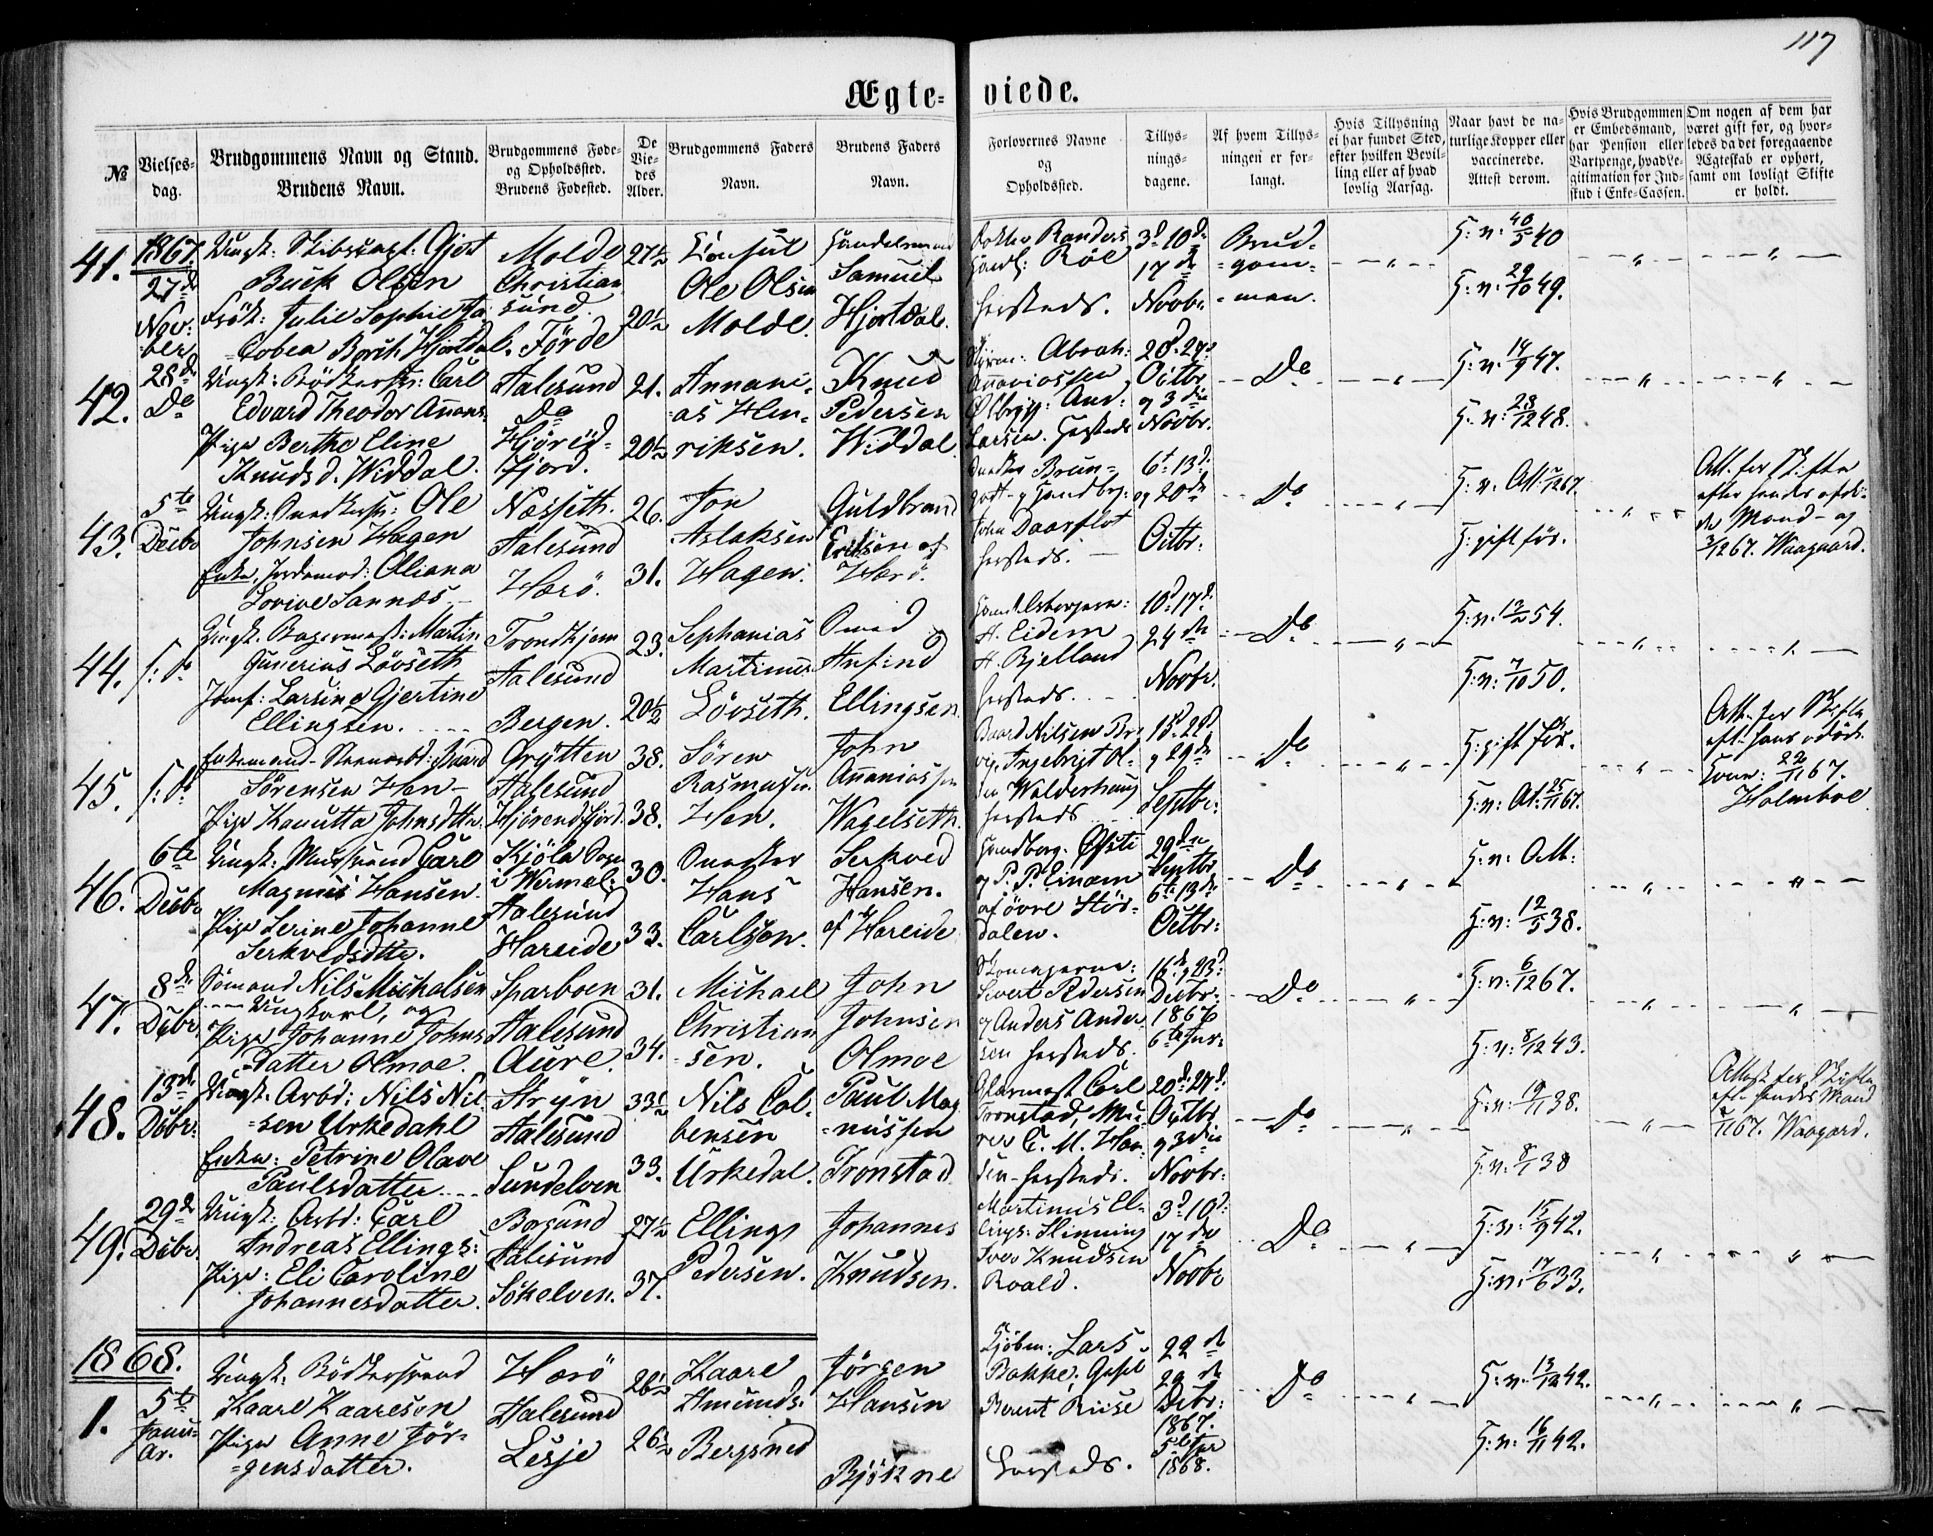 117
Ægte- viede.
№
Vielses-
dag.
Brudgommens Navn og Stand.
Brudens Navn.
Brudgommens Føde-
og Opholdssted.
Brudens Fødested.
De
Vie-
des
Alder.
Brudgommens Faders
Navn.
Brudens Faders
Navn.
Forlovernes Navne
og
Opholdssted.
Tillys-
nings-
dagene.
Af hvem Tillys-
ningen er for-
langt.
Hvis Tillysning
ei har fundet Sted,
efter hvilken Bevil-
ling eller af hvad
lovlig Aarsag.
Naar havt de na-
turlige Kopper eller
vaccinerede.
Attest derom.
Hvis Brudgommen
er Embedsmand,
har Pension eller
Vartpenge, hvad Le-
gitimation for Ind-
skud i Enke-Cassen.
Om nogen af dem har
været gift før, og hvor-
ledes da det foregaaende
Ægteskab er ophørt,
samt om lovligt Skifte
er holdt.
41. 1867. 27d Nov:ber
Ungk: Skibscapt: Gjert
Buck Olsen
Frøk: Julie Sophie Ja-
cobea Borch Hjortdal.
Molde
Christian
sund.
Förde
27½
20½
Consul
Ole Olsen
Molde.
Handelsmand
Samuel
Hjortdal.
Doktor Randers
Handl: Röe
hersteds.
3d 10de
17de
Novbr.
Brud-
gom-
men.
G: v: 40
G: v: 29/10 49.
42. 28de Do
Ungk: Bödkersv: Carl
Edvard Theodor Anans.
Pige Berthe Eline
Knudsd. Widdal.
Aalesund
Do
Hjörid-
fjord.
21.
20½
Annani-
as Hen-
riksen.
Knud
Pedersen
Widdal
Abrah:
Annaniassen
And:
Larsen. hersteds
20d 27de
Octbr
og 3die
Novbr.
Do
G: v: 14/9 47.
G: v: 23/12 48.
43. 5te Decbr
Ungk: Snedkersv: Ole
Johnsen Hagen
Enke, Jordemod: Oliana
Lovise Sannæs
Næsseth.
Aalesund
Harö.
26.
31.
Jon
Aslaksen
Hagen.
Guldbrand
Eriksen af
Harö.
Snedker Brun-
John Daarflot
hersteds.
6te 13de
og 20de
Octbr:
Do
G: v. Att.
G: gift för.
Att. for Skifte
efter hendes afdö-
de Mand
3/12 67. Waagaard.
44. d: Do
Ungk. Bagermest: Martin
Gunerius Lövseth
Jomf: Larsine Gjertine
Ellingsen.
Trondhjem
Aalesund
Bergen.
23.
20½
Sephanias
Martinus
Lövseth.
Anfind
Ellingsen.
H. Eidem
H. Bjelland
hersteds.
10d 17de
24de
Novbr.
Do
G: v: 54.
G: v: 7/10 50.
45. d: Do
Enkemand Baard
Sörensen Hen
Pige Johnsdtter
Grytten
Aalesund
Hjörendfjord.
38.
38.
Sören
Rasmussen
Hen.
John
Ananiassen
Wagelseth.
Baard Nilsen
Ingebrigt Ol-
sen Walderhaug
hersteds
15d 22d
og 29de
Septbr:
Do
G: gift för.
G: v: At: 25/11 67.
Att. for Skifte
eft. hans afdöde
Kone: 22/11 67.
Holmboe
46. 6te Decbr
Ungk: Carl
Magnus Hansen.
Pige Serine Johanne
Serkvedsdtter.
Kjöla Sogn
i Wermel:
Aalesund
Hareide
30.
33.
Snedker
Hans
Carlsson.
Serkved
Hansen.
af Hareide
og P. P. Einarn
af övre Stör-
dalen.
29de
Septbr
6te 13de
Octbr:
Do
G: v: Att:
G: v: 12/5 38.
47. 8de Decbr
Sömand Nils Michalsen
Ungkarl, og
Pige Johanne Johns
Datter Olmoe.
Sparboen
Aalesund
Aure.
31.
34.
Michael
Christian
sen.
John
Johnsen
Olmoe
Skomagerne:
Sivert Pedersen
og Anders Ander
sen hersteds.
16de 23d
Decbr:
1866
6te Jnr:
Do
G: v: 6/12 67.
G: v: 8/12 43.
48. 13de Decbr:
Ungk. Arbd: Nils Nil-
sen Urkedahl
Enken: Petrine Olave
Paulsdatter
Stryn
Aalesund
Sundelven
33½
33.
Nils Col-
bensen
Urkedal.
Paul Mag
nussen
Tronstad
Glarmest Carl
Tronstad, Mu-
rer C. M. Han-
sen hersteds.
20de 27de
Octbr
og 3die
Novbr:
Do
G: v: 19/11 38.
G: v: 8/1 38
Attest for Skifte
eft. hendes Mand
67. Waagaard.
49. 29de Decbr
Ungk: Arbd: Carl
Andreas Ellings:
Pige: Eli Caroline
Johannesdatter.
Borgund
Aalesund
Sökelven.
27½
37.
Ellings
Pedersen.
Johannes
Knudsen.
Martinus El-
lings: Slinning
Iver Knudsen
Roald.
3d 10de
17de
Novbr
Do
G: v: 15/9 42.
G: v: 17/6 33.
1868.
1. 5te Janu-
ar.
Ungk: Bödkersvend
Kaare Kaaresen
Pige Anne Jör-
gensdatter.
Harö
Aalesund
Lesje
26½
26½
Kaare
Amunds.
Bergsned
Jörgen
Hansen
Björkne
Lars
Bakke,
Berent Riise
hersteds.
22de
29de
Decbr:
1867.
5te Jnr
1868.
Do
G: v: 13/12 42.
G: v: 16/11 42.